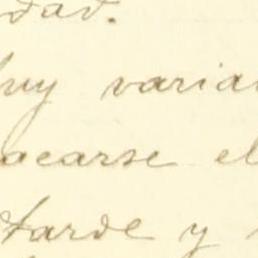 dad.
uy varia
acarse el
tarde y